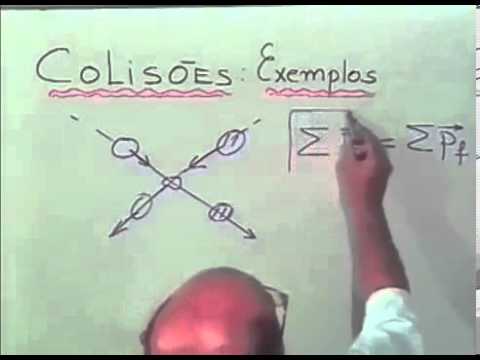 COLISÕES: Exemplos
Σ = Σ p⃗f